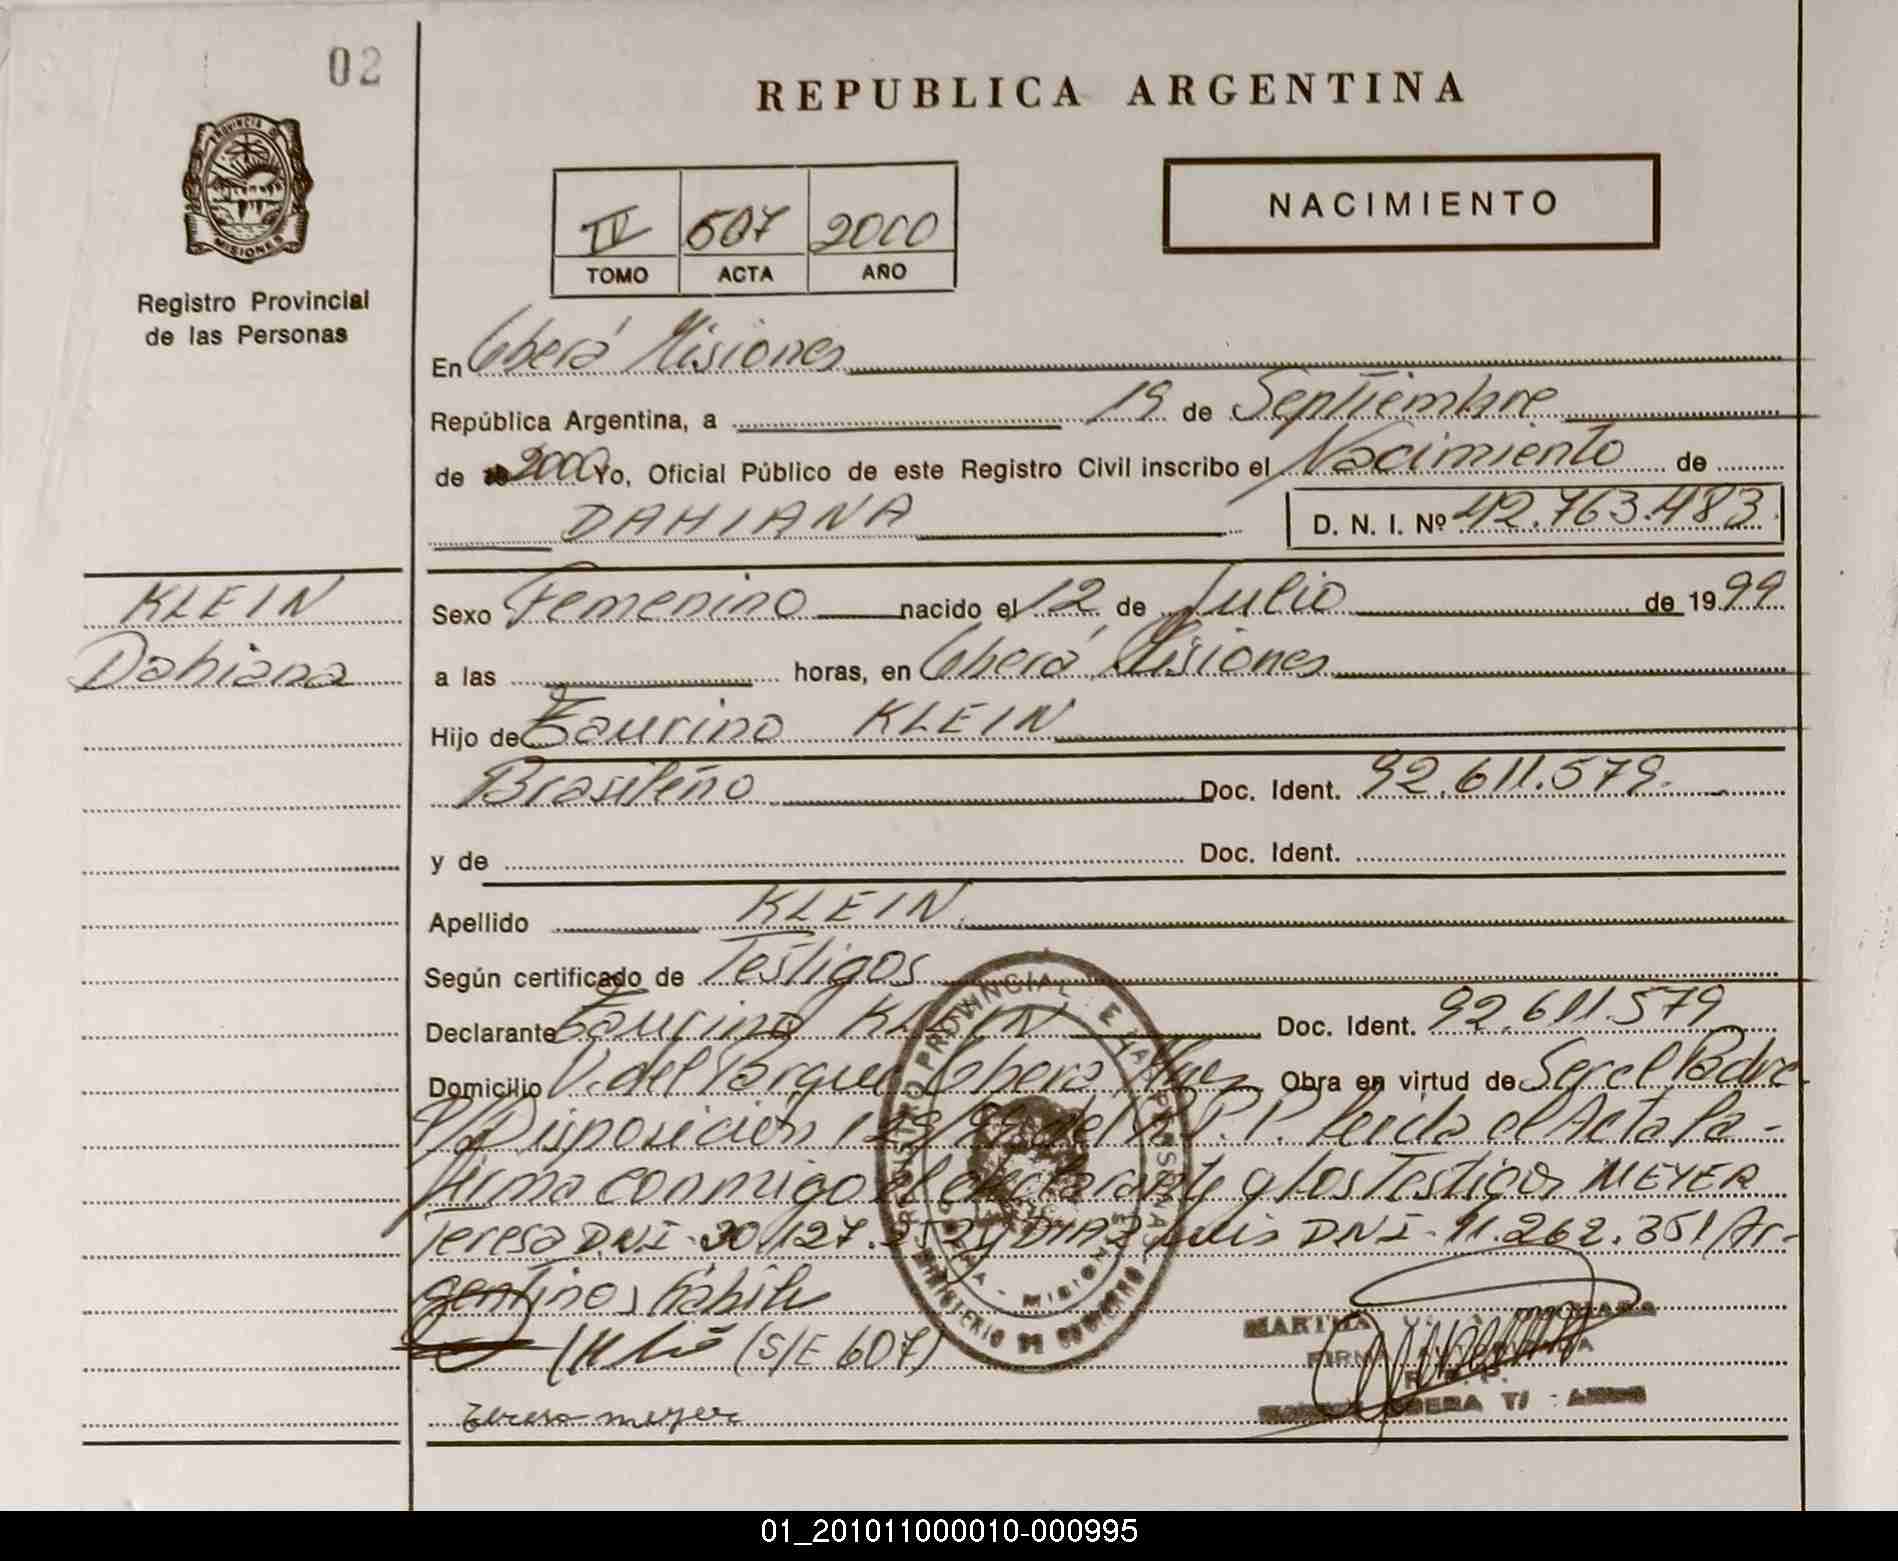 02
REPUBLICA ARGENTINA
PROVINCIA DE
MISIONES
Registro Provincial
de las Personas
NACIMIENTO
IV 507 2000
TOMO ACTA AÑO
En Oberá Misiones
República Argentina, a 19 de Septiembre
de 2000 Yo, Oficial Público de este Registro Civil inscribo el Nacimiento de
DAHIANA D. N. I. Nº 42.763.483
KLEIN
Dahiana
Sexo Femenino nacido el 12 de Julio de 1999
a las horas, en Oberá Misiones
Hijo de Taurino KLEIN
Brasileño Doc. Ident. 92.611.579.
y de Doc. Ident.
Apellido KLEIN
Según certificado de Testigos
Declarante Taurino KLEIN Doc. Ident. 92.611.579
Domicilio V. del Parque Oberá Mnes Obra en virtud de Ser el Padre
P/ Disposición del R.P.P. leida el Acta la
firma conmigo el declarante y los Testigos MEYER
Teresa DNI. 20.127. DIAZ Luis DNI. 11.262.351 Ar-
gentinos hábiles
(S/E 607)
teresa meyer
REGISTRO PROVINCIAL DE LAS PERSONAS
MINISTERIO DE GOBIERNO
OBERA - MISIONES
MARTHA
FIRMA AUTORIZADA
R. P. P.
OBERA
01_201011000010-000995